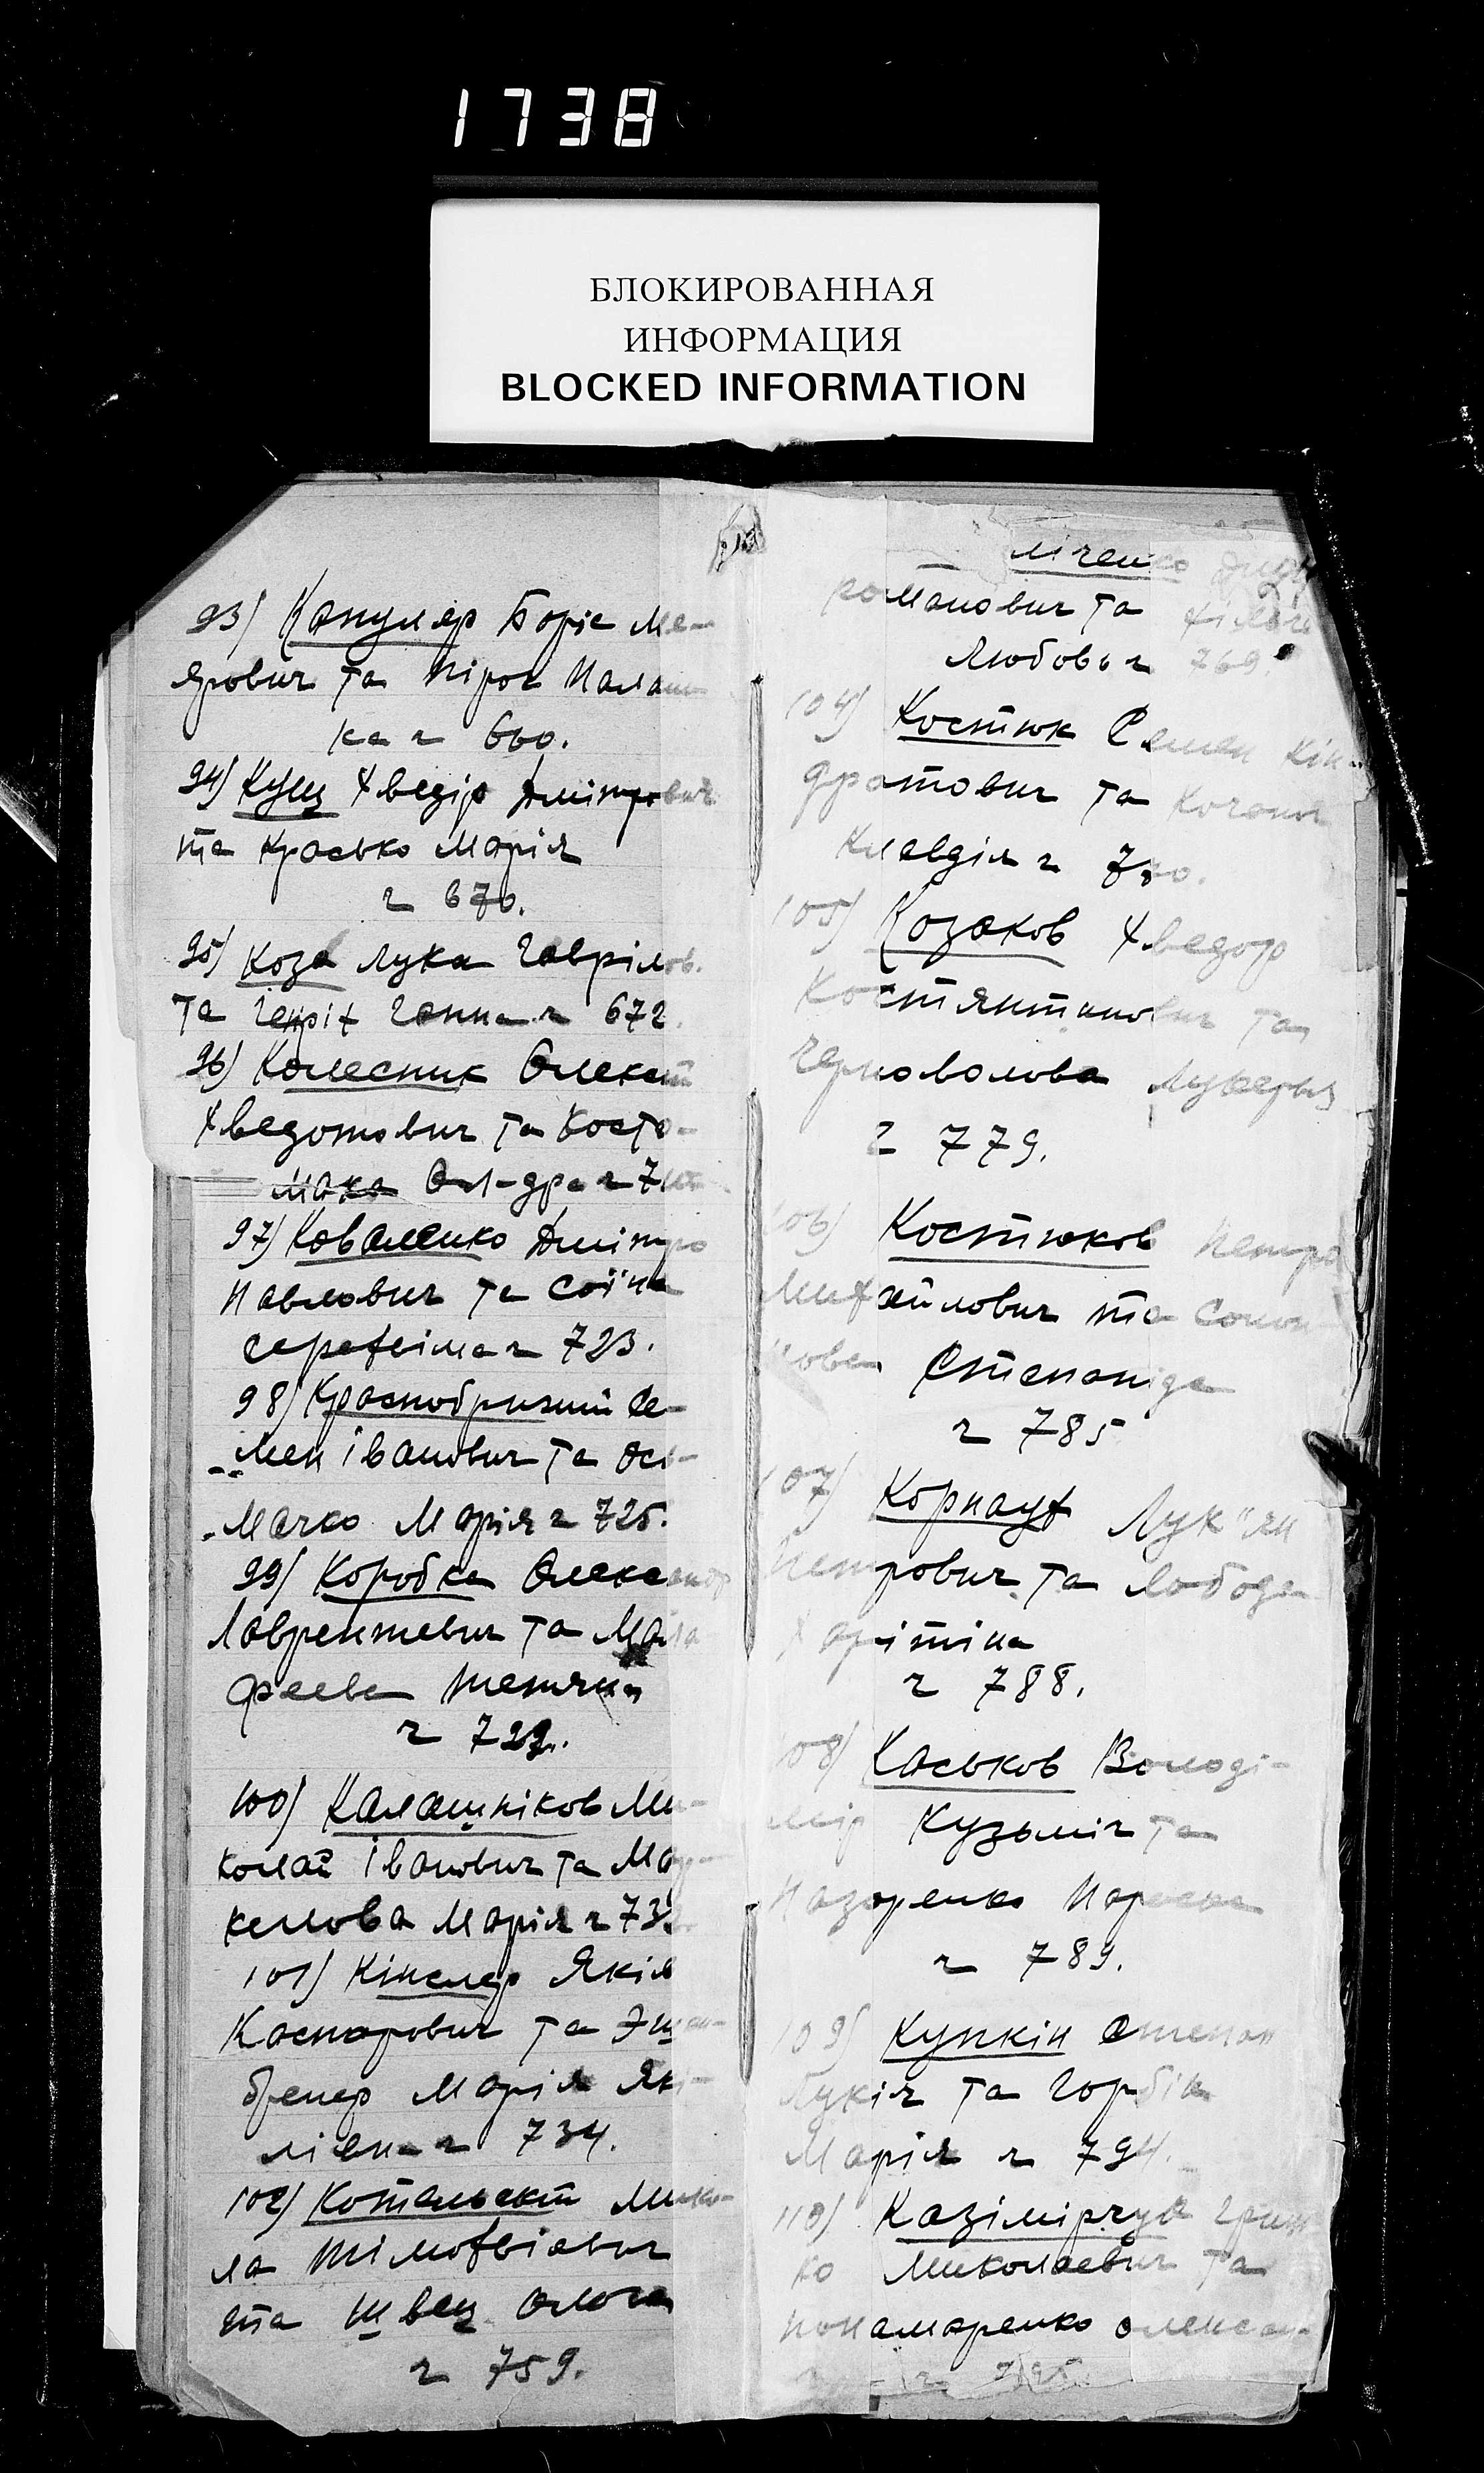 1738
БЛОКИРОВАННАЯ
ИНФОРМАЦИЯ
BLOCKED INFORMATION
93) Капуляр Боріс Ме-
ярович та Пірог Палаш
ка ч 660.
94) Кущ Хведір Дмітрович
та Красько Марія
ч 670.
95) Коза Лука Гаврілов.
та Ганна ч 672.
96) Колесник Олексій
Хведотович та Косто-
мака Ол-дра ч
97) Коваленко Дмітро
Павлович та Соїна
Серахвіма ч 723.
98) Краснобризий Се-
мен Іванович та Ось-
мачко Марія ч 725.
99) Коробка Олександр
Лаврентевич та Мала
феева Тетяна
ч 729.
100) Калашніков Ми-
колай Іванович та
Марія ч
101) Кінслер Якім
Каспарович та
бренер Марія Які-
лівна ч 734.
102) Котельскій Мико-
ла Тімохвіевич
та Швец Ольга
ч 759.
ліченко
Романович та
Любов ч 769.
104) Костюк Семен Кін-
дратович та
Клавдія ч 770.
105) Козаков Хведор
Костянтинович та
Черноволова Лукерья
ч 779.
106) Костюков Петро
Михайлович та Соло
нова Степаніда
ч 785
107) Корнаух Лук"ян
Петрович та Лобода
Харітіна
ч 788.
108) Каськов Володі-
мір Кузьміч та
Назаренко Параска
ч 789.
109) Купкін Степан
Лукіч та Горбік
Марія ч 794.
110) Казімірчук Гриш
ко Миколаевич та
Понамаренко Олексан-
ч 795.